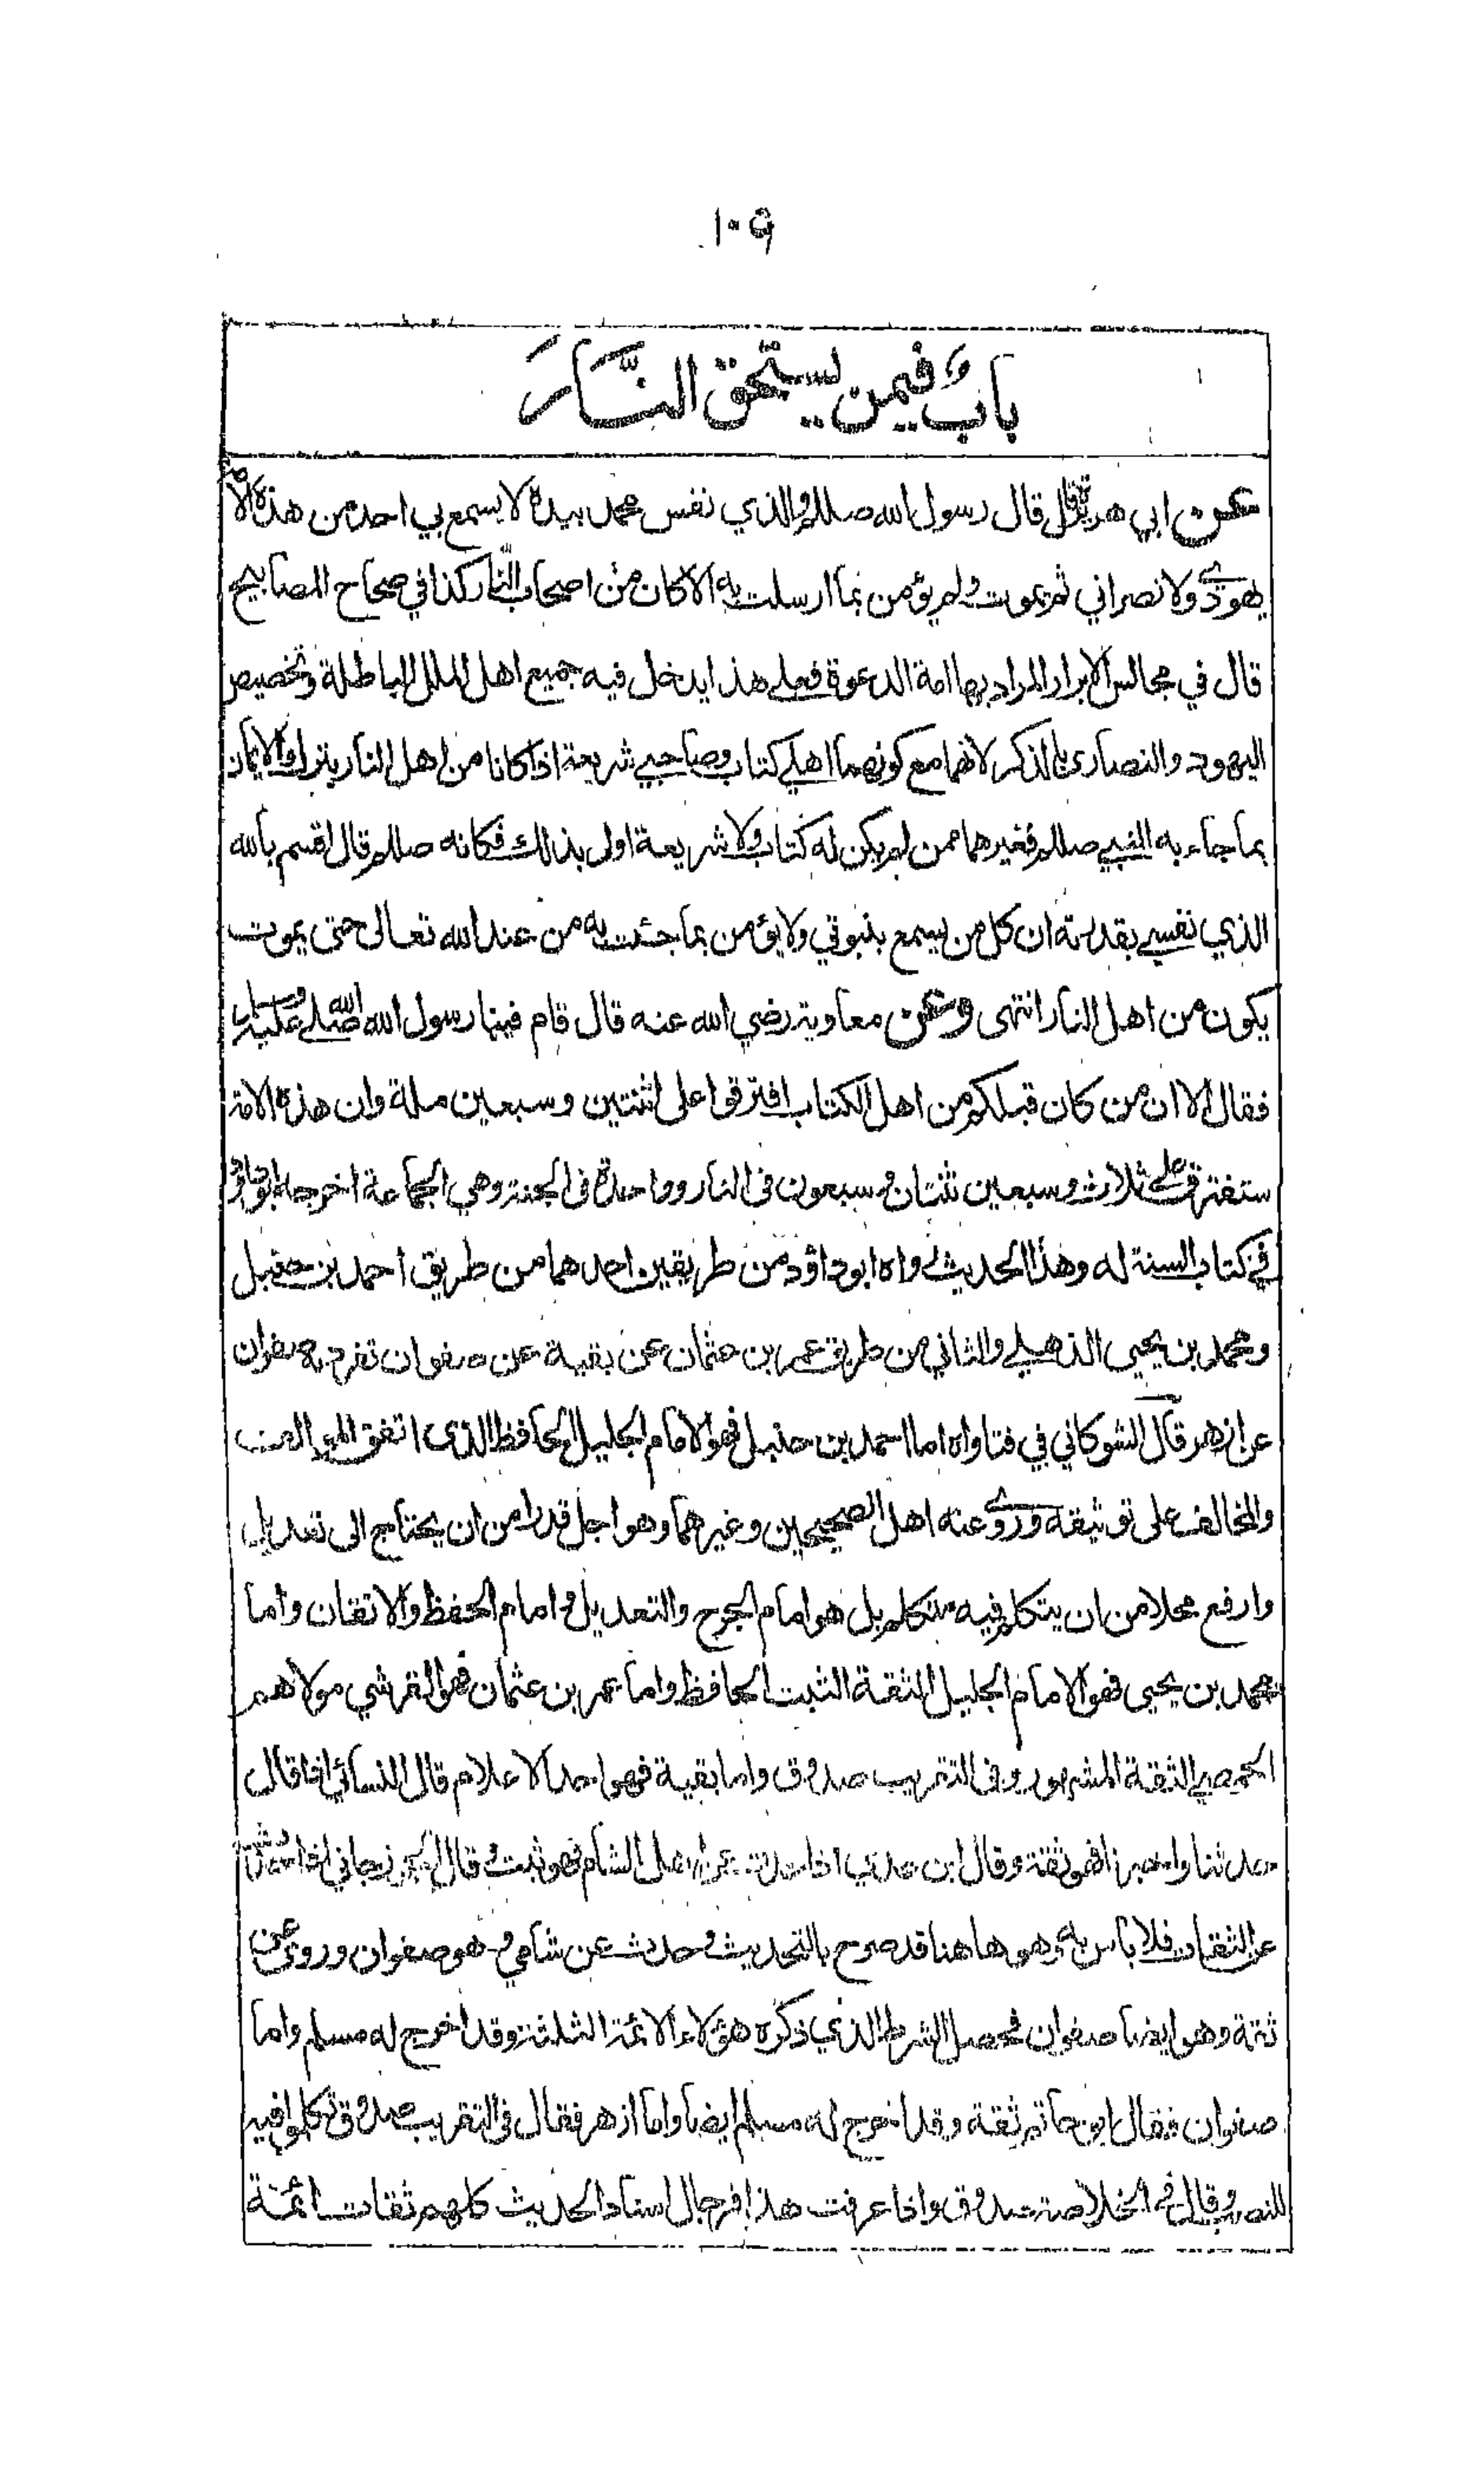 ١٠٩
باب فيمن يستحق النار
عن ابي هريرة قال قال رسول الله صللم والذي نفس محمد بيده لا يسمع بي احد من هذه الامة
يهودي ولا نصراني ثم يموت ولم يؤمن بما ارسلت به الا كان من اصحاب النار كذا في صحاح المصابيح
قال في مجالس الابرار المراد بها امة الدعوة فعلى هذا يدخل فيه جميع اهل الملل الباطلة وتخصيص
اليهود والنصارى بالذكر لانهما مع كونهما اهلي كتاب وصاحبي شريعة اذا كانا من اهل النار بترك الايمان
بما جاء به النبي صللم فغيرهما ممن لم يكن له كتاب ولا شريعة اولى بذلك فكانه صللم قال اقسم بالله
الذي نفسي بقدرته ان كل من يسمع بنبوتي ولا يؤمن بما جئت به من عند الله تعالى حتى يموت
يكون من اهل النار انتهى وعن معاوية رضي الله عنه قال قام فينا رسول الله صلى الله عليه وسلم
فقال الا ان من كان قبلكم من اهل الكتاب افترقوا على اثنتين وسبعين ملة وان هذه الامة
ستفترق على ثلاث وسبعين ثنتان وسبعون في النار وواحدة في الجنة وهي الجماعة اخرجه ابوداود
في كتاب السنة له وهذا الحديث رواه ابوداؤد من طريقين احدهما من طريق احمد بن حنبل
ومحمد بن يحيى الذهلي والثاني من طريق عمر بن عثمان عن بقية عن صفوان تفرد به صفوان
عن ازهر قال الشوكاني في فتاواه اما احمد بن حنبل فهو الامام الجليل الحافظ الذي اتفق الموالف
والمخالف على توثيقه وروى عنه اهل الصحيحين وغيرهما وهو اجل قدرا من ان يحتاج الى تعديل
وارفع محلا من ان يتكلم فيه متكلم بل هو امام الجرح والتعديل وامام الحفظ والاتقان واما
محمد بن يحيى فهو الامام الجليل الثقة الثبت الحافظ واما عمر بن عثمان فهو القرشي مولاهم
الحمصي الثقة المشهور وفي التقريب صدوق واما بقية فهو احد الاعلام قال النسائي اذا قال
حدثنا واخبرنا فهو ثقة وقال ابن عدي اذا حدث عن اهل الشام فهو ثبت وقال الجوزجاني اذا حدث
عن الثقات فلا باس به وهو هاهنا قد صرح بالتحديث وحدث عن شامي وهو صفوان وروى عن
ثقة وهو ايضا صفوان فحصل الشرط الذي ذكره هؤلاء الائمة الثلثة وقد اخرج له مسلم واما
صفوان فقال ابو حاتم ثقة وقد اخرج له مسلم ايضا واما ازهر فقال في التقريب صدوق تكلموا فيه
للنصب وقال في الخلاصة صدوق واذا عرفت هذا فرجال اسناد الحديث كلهم ثقات ائمة